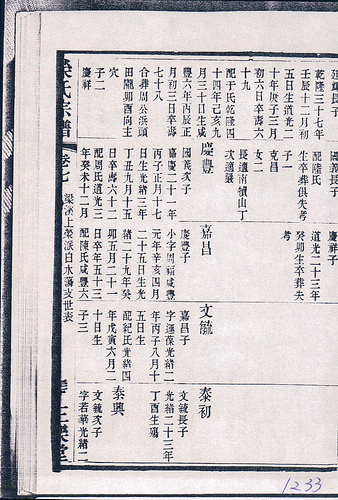 乾隆三十七年
壬辰十二月初
五日生道光二
十年庚子三月
初六日卒壽六
十九
配于氏乾隆四
十四年己亥九
月三十日生咸
豐六年丙辰正
月初三日卒壽
七十八
合葬周公浜頭
田隴卯酉向主
穴
子二
慶祥
國義長子
配陸氏
生卒葬俱失考
子一
克昌
女二
長適南塘山丁
次適嚴
慶豐
國義次子
嘉慶二十一年
丙子正月十七
日生光緒三年
丁丑九月十五
日卒壽六十二
配周氏道光三
年癸未十二月
道光二十三年
癸卯生卒葬失
考
嘉昌
慶豐子
小字周福咸豐
元年辛亥四月
二十五日生光
緒二十九年癸
卯五月二十一
日卒年五十三
配陳氏咸豐六
文毓
嘉昌子
字運葆光緒二
年丙子八月十
五日生
配紀氏光緒四
年戊寅六月二
十日生
子三
泰初
文毓長子
光緒二十三年
丁酉生殤
泰興
文毓次子
字若華光緒二
氏宗譜
卷七
1233